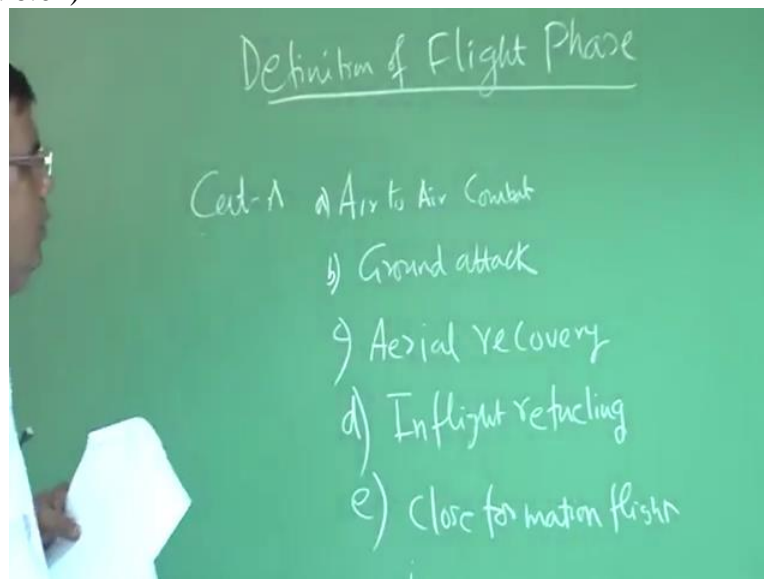 Definition of Flight Phase
Cat-A a) Air to Air Combat
b) Ground attack
c) Aerial recovery
d) Inflight refueling
e) Close formation flight